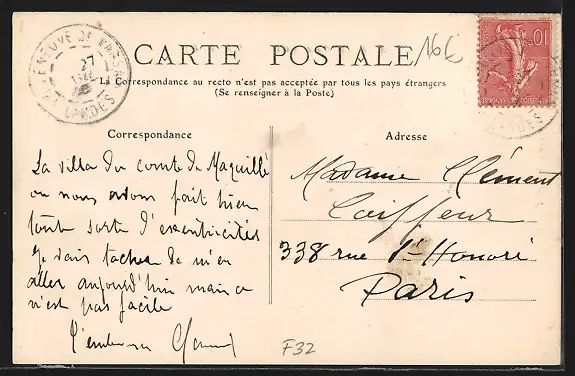 CARTE POSTALE
16€
La Correspondance au recto n'est pas acceptée par tous les pays étrangers
(Se renseigner à la Poste)
Correspondance
Adresse
La villa du comte de
ou nous avons fait bien
toute sorte d'excentricités
Je vais tacher de m'en
aller aujourd'hui mais ce
n'est pas facile
Madame Clément
Coiffeur
338 rue St Honoré
Paris
F32
27
LANDES
10